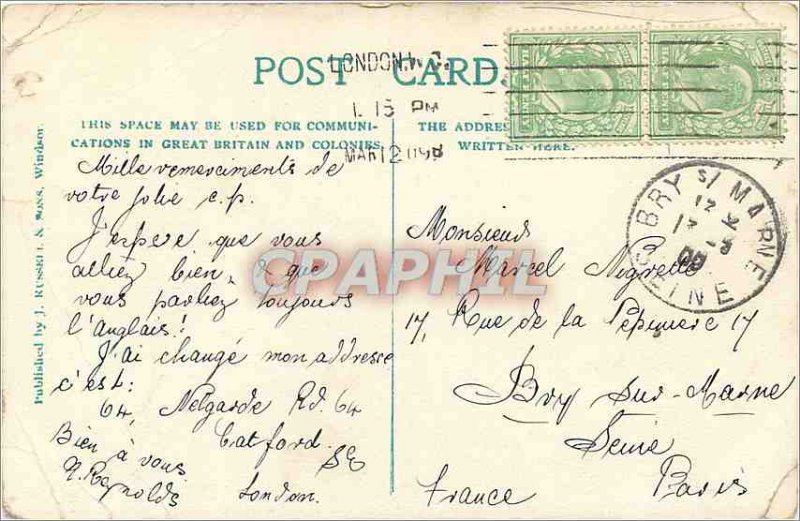 POST CARD.
LONDON.W.C.
1. 15 PM
MAR 12 09
THIS SPACE MAY BE USED FOR COMMUNI-
CATIONS IN GREAT BRITAIN AND COLONIES
THE ADDRESS
WRITTEN HERE.
Published by J. RUSSELL & SONS, Windsor.
Mille remerciments de
votre jolie c.p.
J'espere que vous
alliez bien, & que
vous parliez toujours
l'Anglais!
J'ai changé mon addresse
c'est:
64, Nelgarde Rd. 64
Catford.
SE
London.
Bien à vous
Reynolds
BRY s/ MARNE
SEINE
Monsieur
Marcel Nigrette
17, Rue de la Pepiniere 17
Bry Sur-Marne
Seine
Paris
France
CPAPHIL